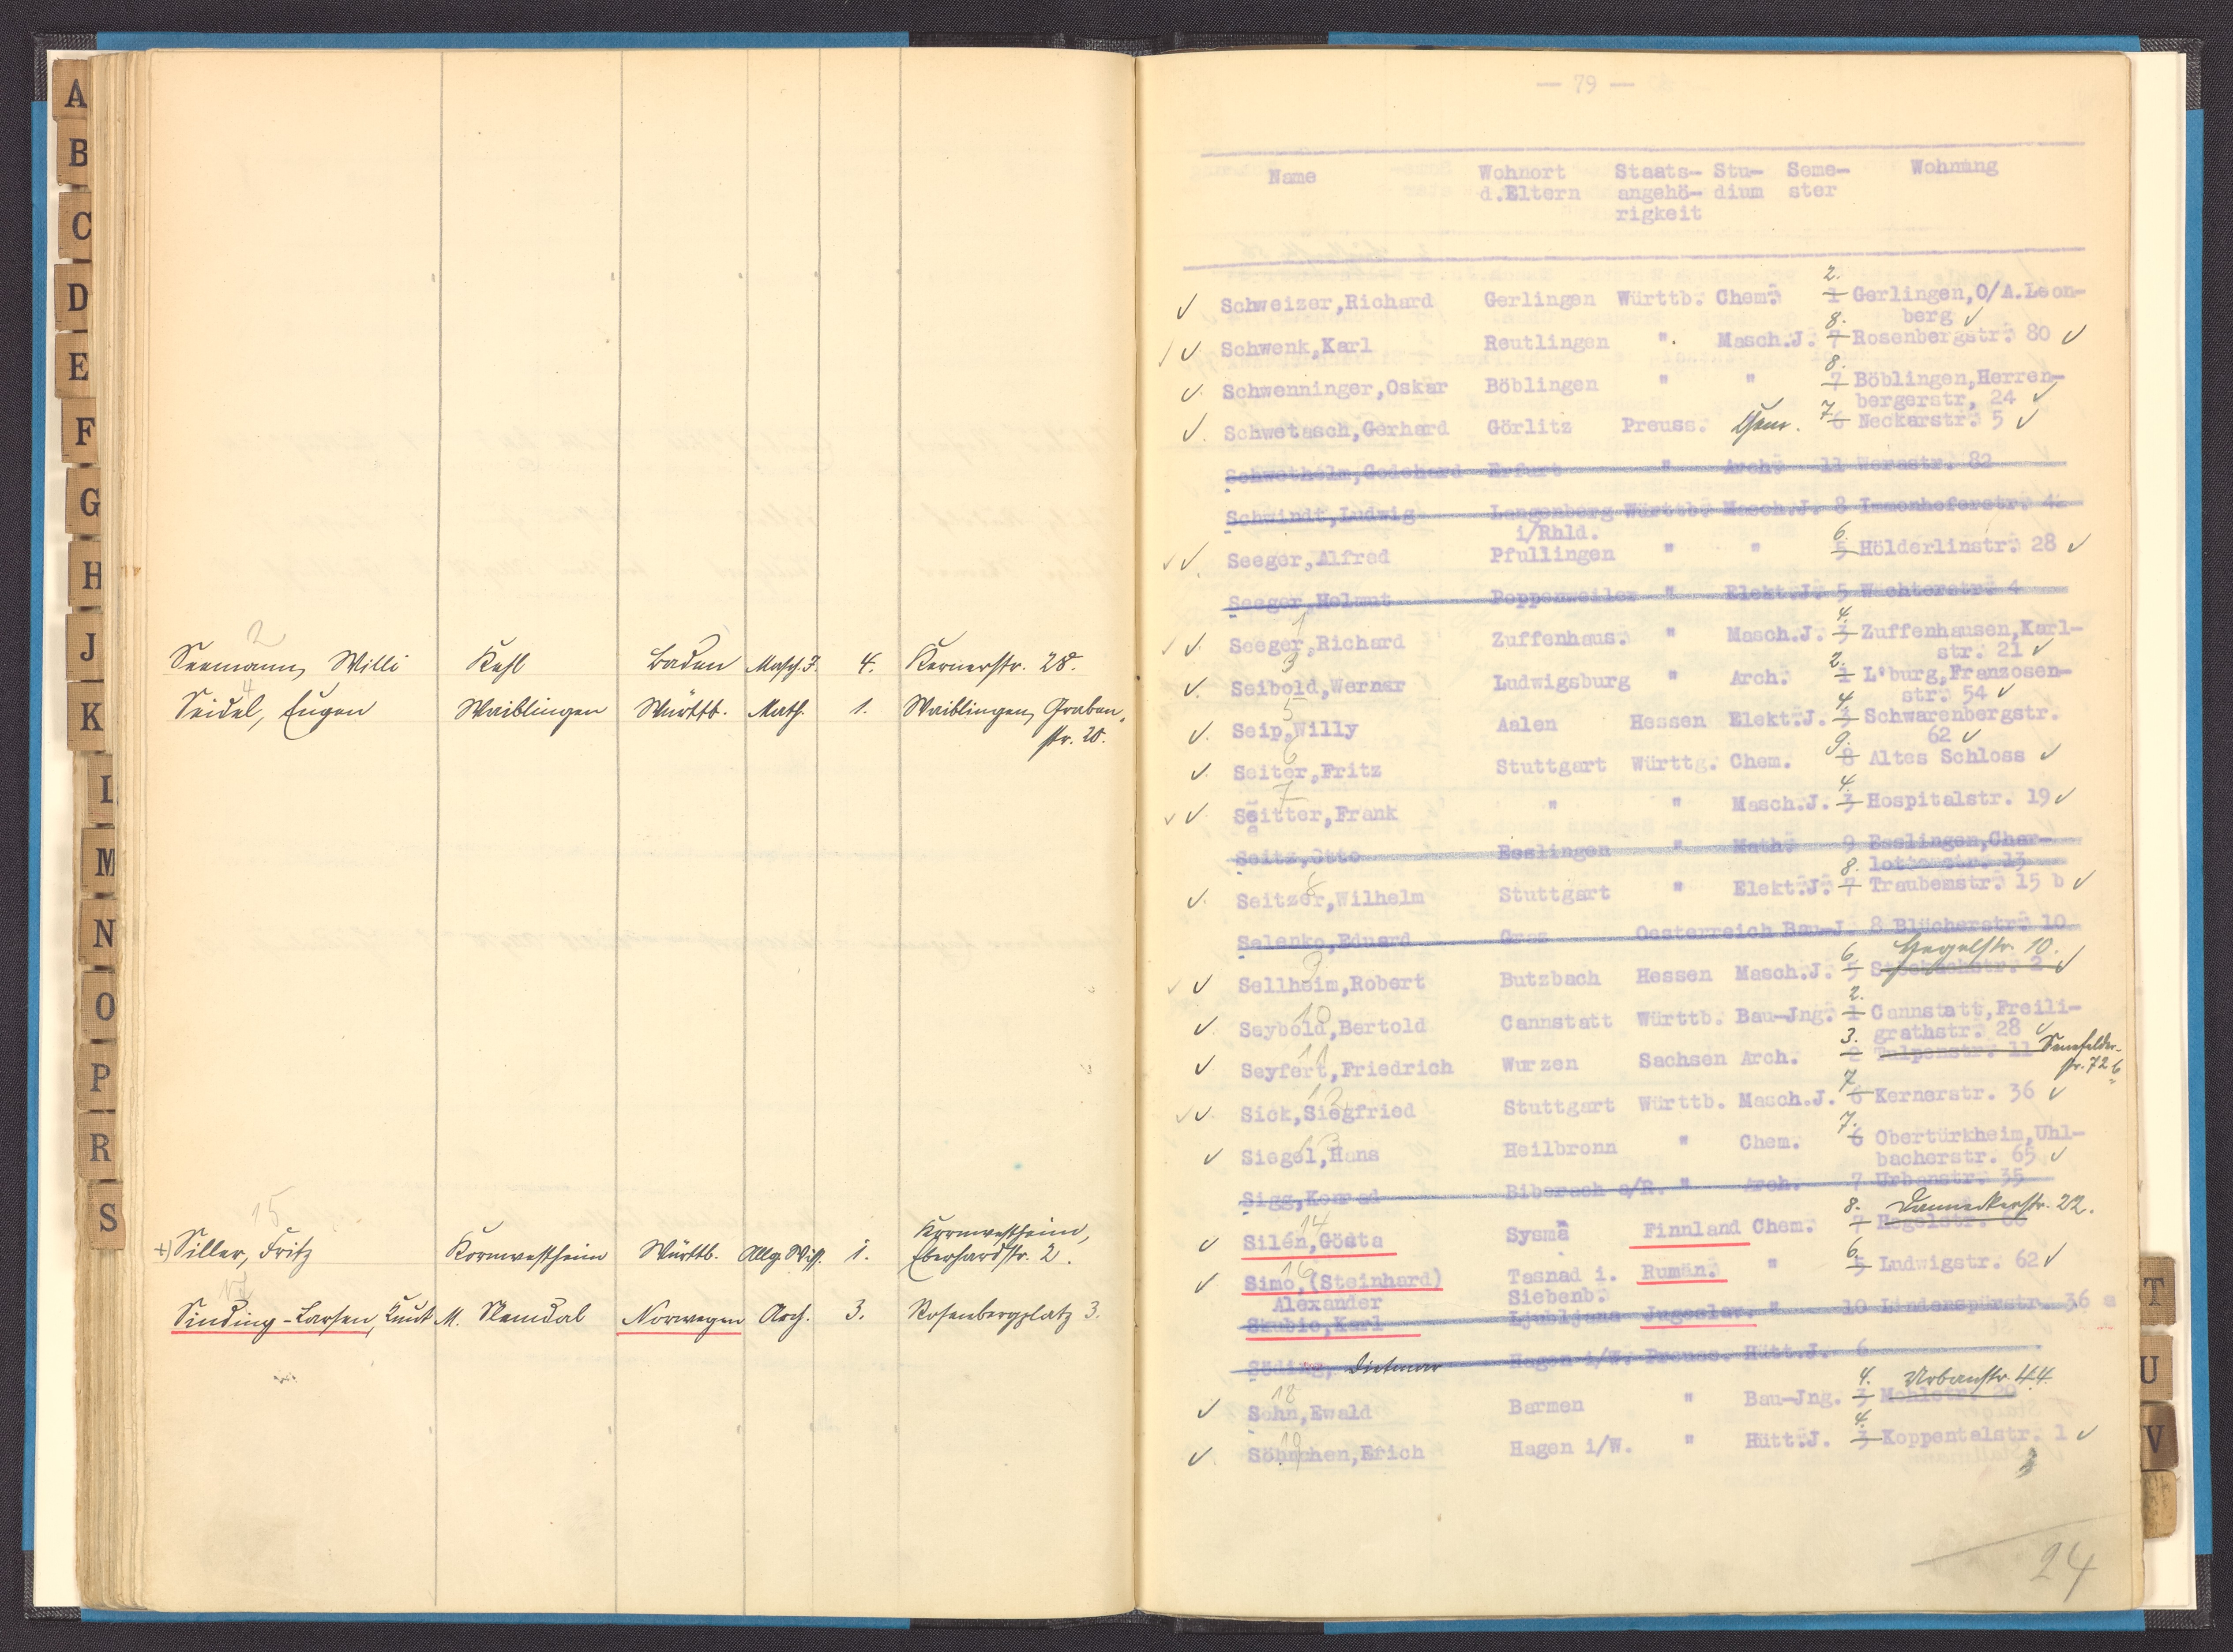 A
B
C
D
E
F
G
H
J
K
L
M
N
O
P
R
S
2
Seemann, Willi Kehl Baden Masch. J. 4. Kernerstr. 28.
4
Seidel, Eugen Waiblingen Württb. Math. 1. Waiblingen, Graben-
str. 20.
15
+) Siller, Fritz Kornwestheim Württb. Allg. Wiss. 1. Kornwestheim,
Eberhardstr. 2.
17
Sinding-Larsen, Knut M. Slemdal Norwegen Arch. 3. Rosenbergplatz 3.
— 79 —
Name Wohnort Staats- Stu- Seme- Wohnung
d.Eltern angehö- dium ster
rigkeit
2.
✓ Schweizer,Richard Gerlingen Württb. Chem. 1 Gerlingen,O/A.Leon-
berg ✓
8.
✓ Schwenk,Karl Reutlingen " Masch.J. 7 Rosenbergstr. 80 ✓
8.
✓ Schwenninger,Oskar Böblingen " " 7 Böblingen,Herren-
bergerstr, 24 ✓
✓ Schwetasch,Gerhard Görlitz Preuss. Chem. 7. 6 Neckarstr. 5 ✓
Schwethelm,Godehard Erfurt " Arch. 11 Werastr. 82
Schwindt,Ludwig Langenberg Württb. Masch.J. 8 Immenhoferstr. 4
i/Rhld.
6.
✓✓ Seeger,Alfred Pfullingen " " 5 Hölderlinstr. 28 ✓
Seeger,Helmut Poppenweiler " Elekt.J. 5 Wächterstr. 4
1 4.
✓✓ Seeger,Richard Zuffenhaus. " Masch.J. 3 Zuffenhausen,Karl-
str. 21 ✓
3 2.
✓ Seibold,Werner Ludwigsburg " Arch. 1 L'burg,Franzosen-
str. 54 ✓
5 4.
✓ Seip,Willy Aalen Hessen Elekt.J. 3 Schwarenbergstr.
62 ✓
6 9.
✓ Seiter,Fritz Stuttgart Württg. Chem. 8 Altes Schloss ✓
7 4.
✓✓ Seitter,Frank " " Masch.J. 3 Hospitalstr. 19 ✓
Seitz,Otto Esslingen " Math. 9 Esslingen,Char-
lottenstr. 13
8 8.
✓ Seitzer,Wilhelm Stuttgart " Elekt.J. 7 Traubemstr. 15 b ✓
Selenko,Eduard Graz Oesterreich Bau-J. 8 Blücherstr. 10
9 6. Hegelstr. 10.
✓✓ Sellheim,Robert Butzbach Hessen Masch.J. 5 2 ✓
10 2.
✓ Seybold,Bertold Cannstatt Württb. Bau-Jng. 1 Cannstatt,Freili-
grathstr. 28 ✓
11 3.
✓ Seyfert,Friedrich Wurzen Sachsen Arch. 2 Tulpenstr. 11 Senefelder-
str. 72 b
12 7.
✓✓ Sick,Siegfried Stuttgart Württb. Masch.J. 6 Kernerstr. 36 ✓
13 7.
✓ Siegel,Hans Heilbronn " Chem. 6 Obertürkheim,Uhl-
bacherstr. 65 ✓
Sigg,Konrad Biberach a/R. " Arch. 7 Urbanstr. 35
14 8. Danneckerstr. 22.
✓ Silén,Gösta Sysmä Finnland Chem. 7 Hegelstr. 60
16 6.
✓ Simo,(Steinhard) Tasnad i. Rumän. " 5 Ludwigstr. 62 ✓
Alexander Siebenb.
Skubic,Karl Ljubljana Jugoslav. " 10 Lindenspürstr. 36 a
Söding, Dietmar Hagen i/W. Preuss. Hütt.J. 6
18 4. Urbanstr. 44.
✓ Sohn,Ewald Barmen " Bau-Jng. 3 Mohlstr. 20
19 4.
✓ Söhnchen,Erich Hagen i/W. " Hütt.J. 3 Koppentalstr. 1 ✓
24
T
U
V